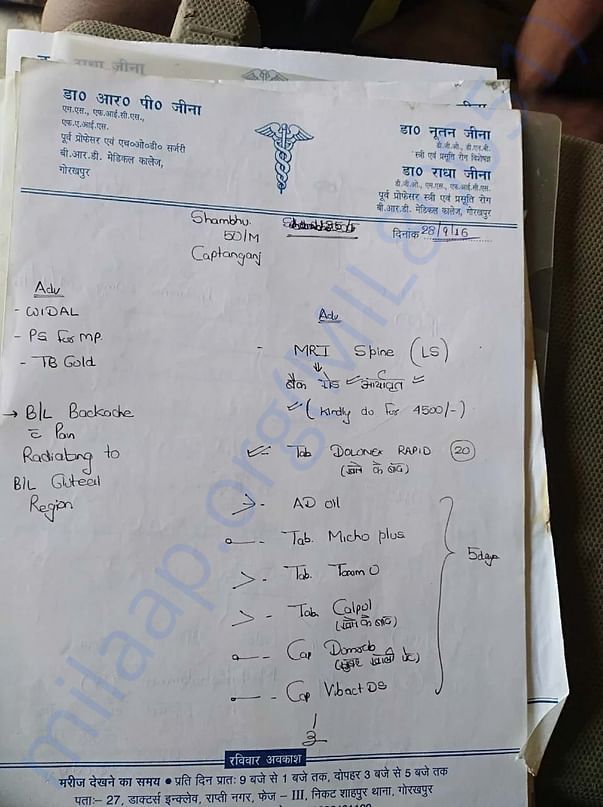 डा० आर० पी० जीना
एम.एस., एफ.आई.सी.एस.,
एफ.ए.आई.एस.
पूर्व प्रोफेसर एवं एच०ओ०डी० सर्जरी
बी.आर.डी. मेडिकल कालेज,
गोरखपुर
डा० नूतन जीना
डी.जी.ओ., डी.एन.बी.
स्त्री एवं प्रसूति रोग विशेषज्ञ
डा० राधा जीना
डी.जी.ओ., एम.एस., एफ.आई.सी.एस.
पूर्व प्रोफेसर स्त्री एवं प्रसूति रोग
बी.आर.डी. मेडिकल कालेज, गोरखपुर
दिनांक 28/9/16
Shambhu
50/M
Captanganj
Adv
- WIDAL
- PS for MP
- TB Gold
→ B/L Backache
c Pain
Radiating to
B/L Gluteal
Region
Adv
- MRI Spine (LS)
बैंक रोड आर्यावृत
(Kindly do for 4500/-)
Tab DOLONEX RAPID 20
(खाने के बाद)
AD oil
Tab. Micho plus
Tab.
Tab. Calpol
(खाने के बाद)
Cap
(सुबह खाली पेट)
Cap Vibact DS
5 days
रविवार अवकाश
मरीज देखने का समय ● प्रति दिन प्रातः 9 बजे से 1 बजे तक, दोपहर 3 बजे से 5 बजे तक
पताः- 27, डाक्टर्स इन्क्लेव, राप्ती नगर, फेज - III, निकट शाहपुर थाना, गोरखपुर